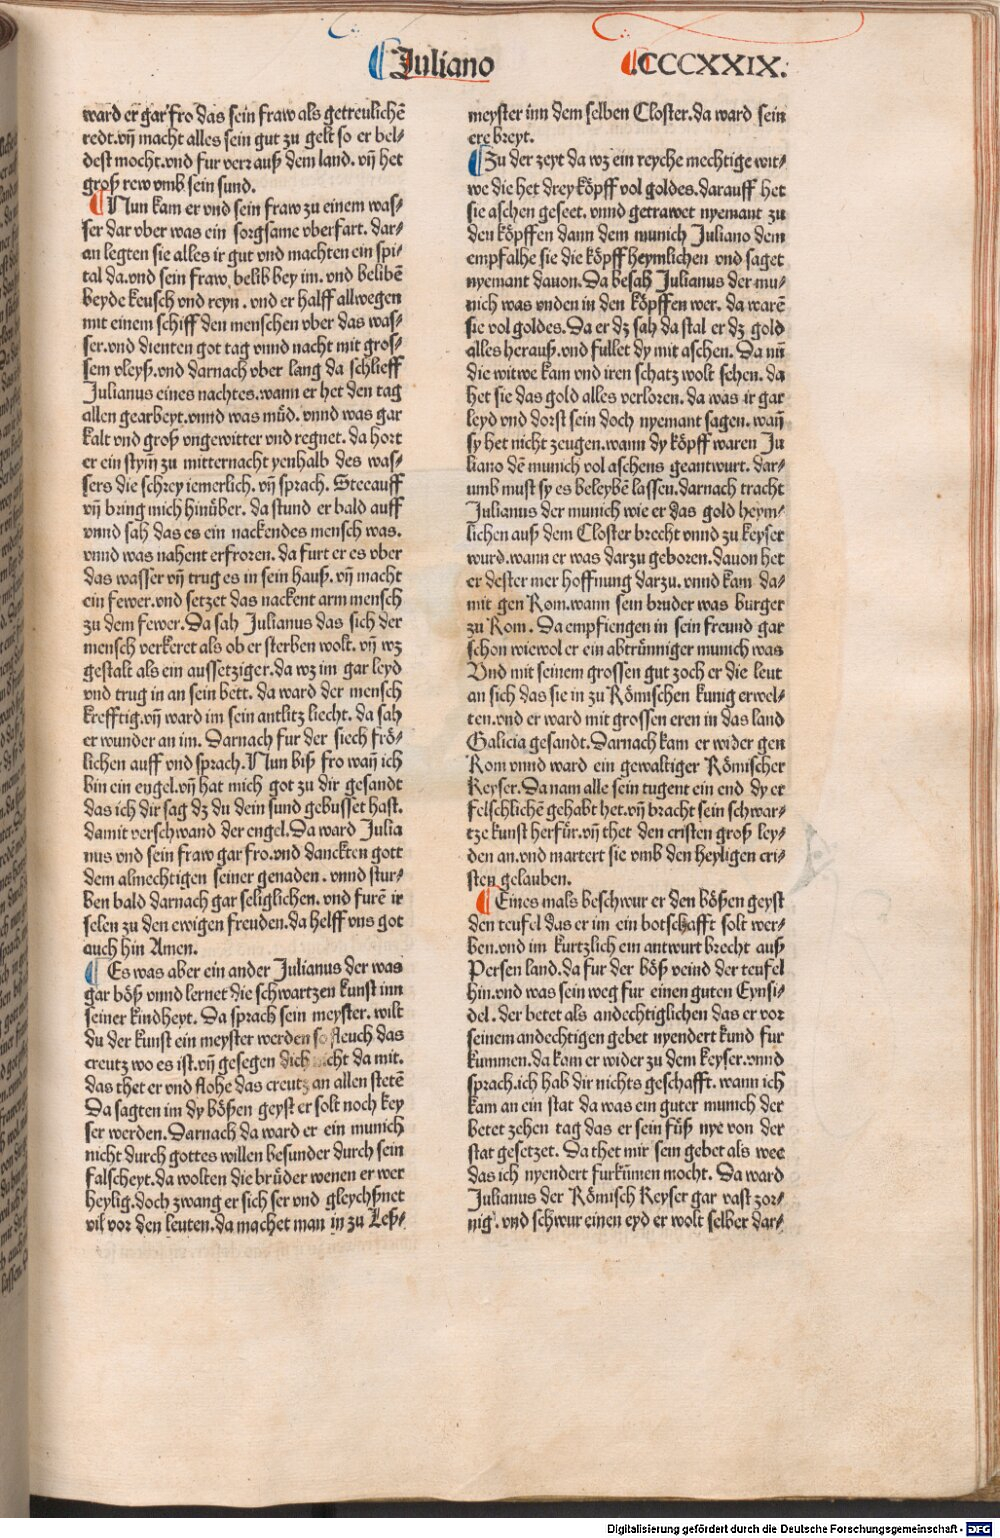 Juliano
CCCCXXIX.
ward er gar fro das sein fraw als getreulichē
redt.vn̄ macht alles sein gut zu gelt so er bel⸗
dest mocht.vnd fur verr auß dem land. vn̄ het
groß rew vmb sein sund.
Nun kam er vnd sein fraw zu einem was⸗
ser dar vber was ein sorgsame vberfart. dar⸗
an legten sie alles ir gut vnd machten ein spi⸗
tal da.vnd sein fraw belib bey im. vnd belibē
beyde keusch vnd reyn. vnd er halff allwegen
mit einem schiff den menschen vber das was⸗
ser.vnd dienten got tag vnnd nacht mit gros⸗
sem vleyß.vnd darnach vber lang da schlieff
Julianus eines nachtes.wann er het den tag
allen gearbeyt.vnnd was müd. vnnd was gar
kalt vnd groß vngewitter vnd regnet. da hort
er ein stym̄ zu mitternacht yenhalb des was⸗
sers die schrey iemerlich. vn̄ sprach. Stee auff
vn̄ bring mich hinüber. da stund er bald auff
vnnd sah das es ein nackendes mensch was.
vnnd was nahent erfrozen. da furt er es vber
das wasser vn̄ trug es in sein hauß. vn̄ macht
ein fewer.vnd setzet das nackent arm mensch
zu dem fewer. Da sah Julianus das sich der
mensch verkeret als ob er sterben wolt. vn̄ wz
gestalt als ein aussetziger.da wz im gar leyd
vnd trug in an sein bett. da ward der mensch
krefftig.vn̄ ward im sein antlitz liecht. da sah
er wunder an im. Darnach fur der siech frö⸗
lichen auff vnd sprach. Nun biß fro wan̄ ich
bin ein engel.vn̄ hat mich got zu dir gesandt
das ich dir sag dz du dein sund gebusset hast.
damit verschwand der engel. Da ward Julia
nus vnd sein fraw gar fro.vnd danckten gott
dem almechtigen seiner genaden. vnnd stur⸗
ben bald darnach gar seliglichen. vnd furē ir
selen zu den ewigen freuden.da helff vns got
auch hin Amen.
Es was aber ein ander Julianus der was
gar böß vnnd lernet die schwartzen kunst inn
seiner kindheyt. Da sprach sein meyster. wilt
du der kunst ein meyster werden so fleuch das
creutz wo es ist.vn̄ gesegen dich nicht da mit.
das thet er vnd flohe das creutz an allen stetē
Da sagten im dy bößen geyst er solt noch key
ser werden. Darnach da ward er ein munich
nicht durch gottes willen besunder durch sein
falscheyt.da wolten die brüder wenen er wer
heylig.doch zwang er sich ser vnd gleychßnet
vil vor den leuten.da machet man in zu Leß⸗
meyster inn dem selben Closter.da ward sein
ere breyt.
Zu der zeyt da wz ein reyche mechtige wit⸗
we die het drey köpff vol goldes.darauff het
sie aschen geseet. vnnd getrawet nyemant zu
den köpffen dann dem munich Juliano dem
empfalhe sie die köpff heymlichen vnd saget
nyemant dauon. Da besah Julianus der mu⸗
nich was vnden in den köpffen wer. da warē
sie vol goldes. Da er dz sah da stal er dz gold
alles herauß.vnd fullet dy mit aschen. Da nū
die witwe kam vnd iren schatz wolt sehen. da
het sie das gold alles verloren. da was ir gar
leyd vnd dorst sein doch nyemant sagen. wan̄
sy het nicht zeugen.wann dy köpff waren Ju
liano dē munich vol aschens geantwurt. dar⸗
umb must sy es beleybē lassen.darnach tracht
Julianus der munich wie er das gold heym⸗
lichen auß dem Closter brecht vnnd zu keyser
wurd.wann er was darzu geboren.dauon het
er dester mer hoffnung darzu. vnnd kam da⸗
mit gen Rom.wann sein bruder was burger
zu Rom. Da empfiengen in sein freund gar
schon wiewol er ein abtrünniger munich was
Vnd mit seinem grossen gut zoch er die leut
an sich das sie in zu Römischen kunig erwel⸗
ten.vnd er ward mit grossen eren in das land
Galicia gesandt. Darnach kam er wider gen
Rom vnnd ward ein gewaltiger Römischer
Keyser. Da nam alle sein tugent ein end dy er
felschlichē gehabt het.vn̄ bracht sein schwar⸗
tze kunst herfür.vn̄ thet den cristen groß ley⸗
den an.vnd martert sie vmb den heyligen cri⸗
sten gelauben.
Eines mals beschwur er den bößen geyst
den teufel das er im ein botschafft solt wer⸗
ben.vnd im kurtzlich ein antwurt brecht auß
Persen land.da fur der böß veind der teufel
hin.vnd was sein weg fur einen guten Eynsi⸗
del. der betet als andechtiglichen das er vor
seinem andechtigen gebet nyendert kund fur
kummen.da kam er wider zu dem keyser.vnnd
sprach.ich hab dir nichts geschafft. wann ich
kam an ein stat da was ein guter munich der
betet zehen tag das er sein füß nye von der
stat gesetzet. Da thet mir sein gebet als wee
das ich nyendert furkūmen mocht. Da ward
Julianus der Römisch Keyser gar vast zor⸗
nig. vnd schwur einen eyd er wolt selber dar⸗
Digitalisierung gefördert durch die Deutsche Forschungsgemeinschaft - DFG